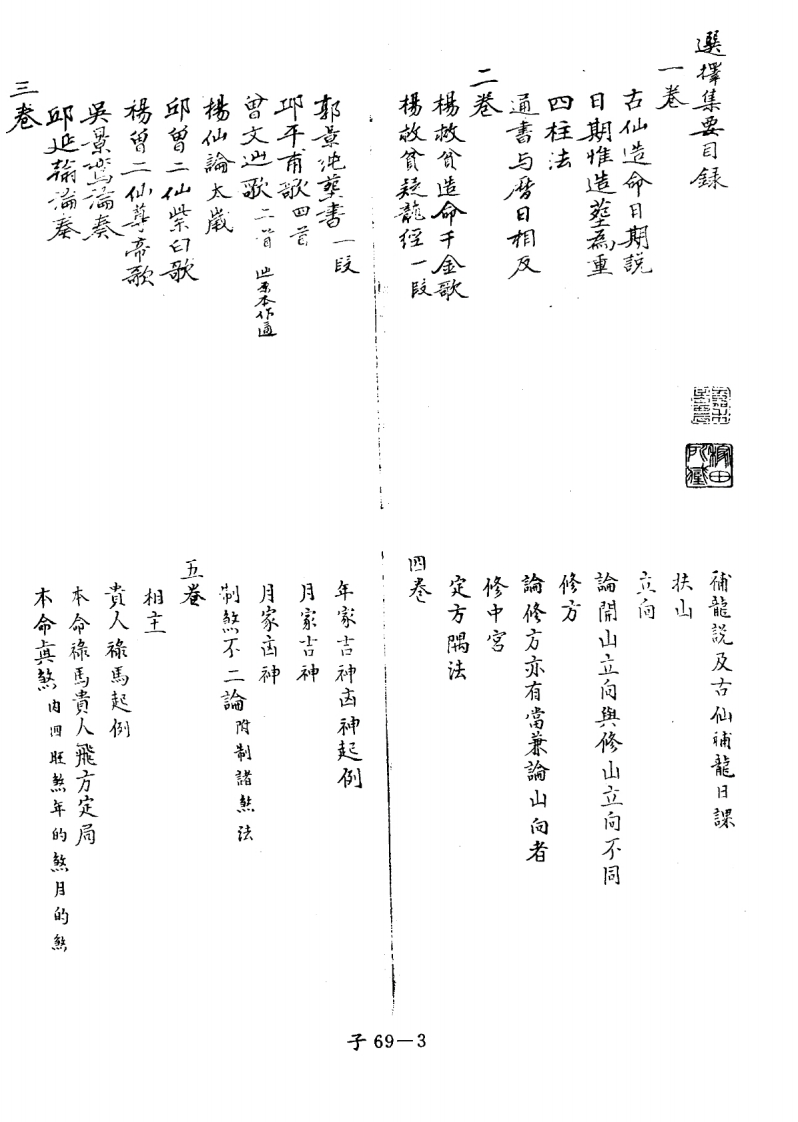 選擇集要目録
一卷
古仙造命日期說
日期惟造塟為重
四柱法
通書与曆日相反
二卷
楊救貧造命千金歌
楊救貧疑龍經一段
郭景純塟書一段
邱平甫歌四首
曾文辿歌二首
楊仙論太嵗
邱曾二仙紫白歌
楊曾二仙尊帝歌
吳景鸞論奏
邱延翰論奏
三卷
補龍説及古仙補龍日課
扶山
立向
論開山立向與修山立向不同
修方
論修方亦有當兼論山向者
修中宮
定方隅法
四巻
年家吉神凶神起例
月家吉神
月家凶神
制煞不二論附制諸煞法
五巻
相主
貴人祿馬起例
本命祿馬貴人飛方定局
本命眞煞内四旺煞年的煞月的煞
子69—3